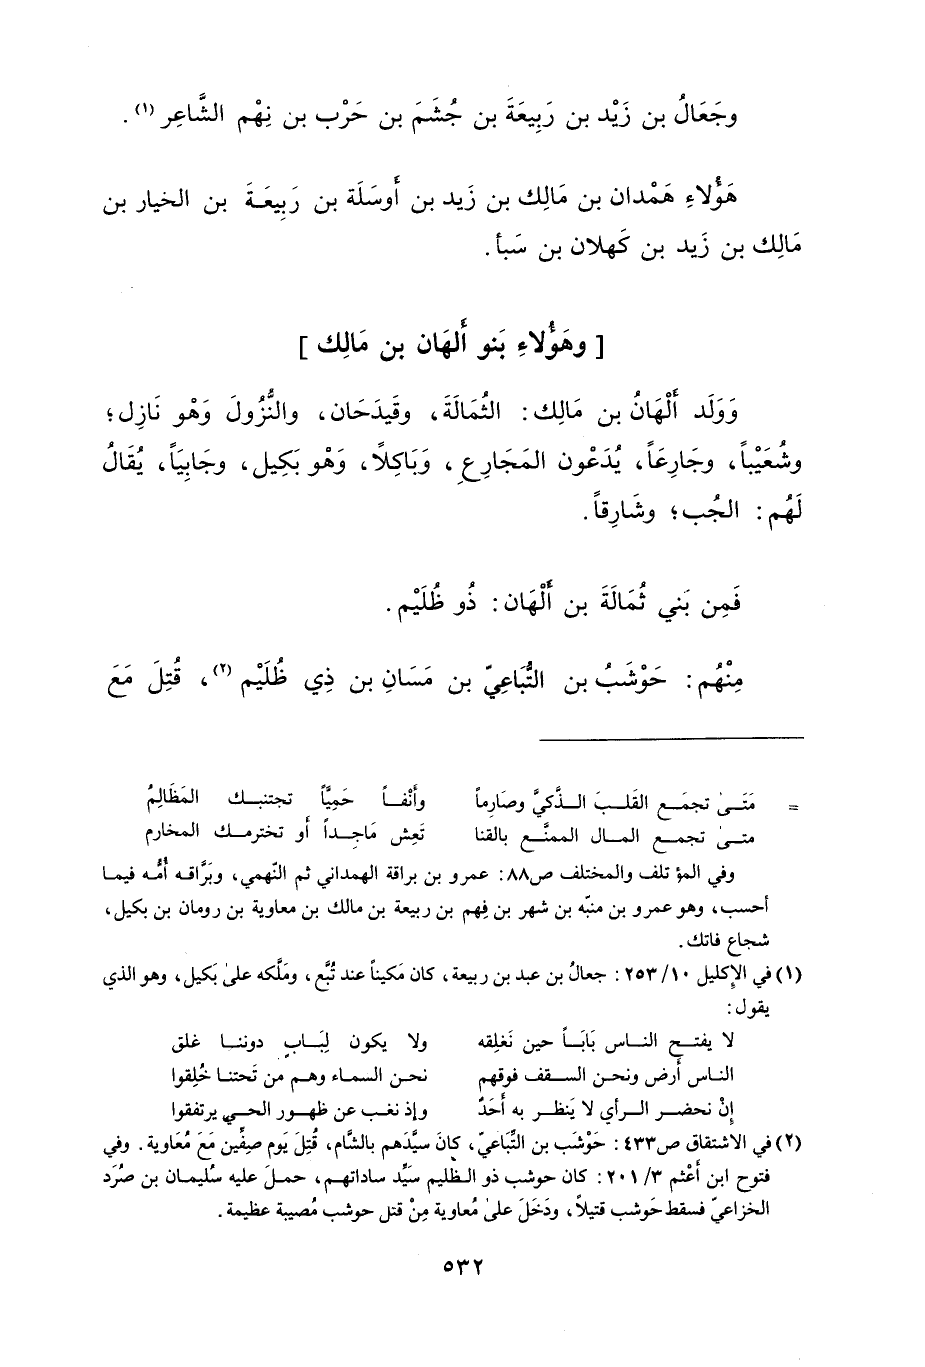 وجَعَالُ بن زَيْد بن رَبِيعَةَ بن جُشَمَ بن حَرْب بن نِهْم الشَّاعِر (١) .
هَؤُلاءِ هَمْدان بن مَالِك بن زَيد بن أَوسَلَة بن رَبِيعَـةَ بن الخيار بن
مَالِك بن زَيد بن كَهلان بن سَبأ .
[ وهَؤُلاءِ بَنو أَلهَان بن مَالِك ]
وَوَلَد أَلْهَانُ بن مَالِك : الثُمَالَةَ ، وقَيدَحَان ، والنُّزُولَ وَهْو نَازِل ؛
وشُعَيْباً ، وجَارِعَاً ، يُدَعْون المَجَارِعِ ، وَبَاكِلًا ، وَهْو بَكِيل ، وجَابِيَاً ، يُقَالُ
لَهُم : الجُب ؛ وشَارِقاً .
فَمِن بَني ثُمَالَةَ بن أَلْهَان : ذُو ظُلَيْم .
مِنْهُم : حَوْشَبُ بن التُّبَاعِيّ بن مَسَانِ بن ذِي ظُلَيْم (٢) ، قُتِلَ مَعَ
= مَتَـىٰ تجمَـع القَلـبَ الـذَّكيَّ وصَارِماً وأَنْفـاً حَمِيَّاً تجتنبـك المَظَالِمُ
متـىٰ تجمـع المـال الممنَّـع بالقنا تَعِش مَاجـداً أو تخترمـك المخارم
وفي المؤ تلف والمختلف ص٨٨ : عمرو بن براقة الهمداني ثم النّهمي ، وبَرَّاقـه أُمُّـه فيمـا
أحسب ، وهو عمرو بن منبّه بن شهر بن فِهم بن ربيعة بن مالك بن معاوية بن رومان بن بكيل ،
شجاع فاتك .
(١) في الإكليل ٢٥٣/١٠ : جعالُ بن عبد بن ربيعة ، كان مَكيناً عند تُبَّع ، ومَلَّكه علىٰ بَكيل ، وهو الذي
يقول :
لا يفتـح النـاس بَابَـاً حين نَغلِقه ولا يكون لِبَـابٍ دوننـا غلق
النـاس أرض ونحـن السـقف فوقهم نحـن السماء وهـم من تَحتنا خُلِقوا
إنْ نحضـر الـرأي لا يَنظـر به أحَدٌ وإذ نغب عن ظهـور الحـي يرتفقوا
(٢) في الاشتقاق ص٤٣٣ : حَوْشَب بن التِّبَاعيّ ، كانَ سيَّدَهم بالشَّام ، قُتِلَ يَوم صفِّين مَعَ مُعَاوية . وفي
فتوح ابن أَعْثم ٢٠١/٣ : كان حوشب ذو الـظَّليم سَيِّد ساداتهـم ، حمـل عليه سُليمـان بن صُرَد
الخزاعيّ فسقط حَوشب قتيلاً ، ودَخَلَ علىٰ مُعاوية مِنْ قتل حوشب مُصيبة عظيمة .
٥٣٢